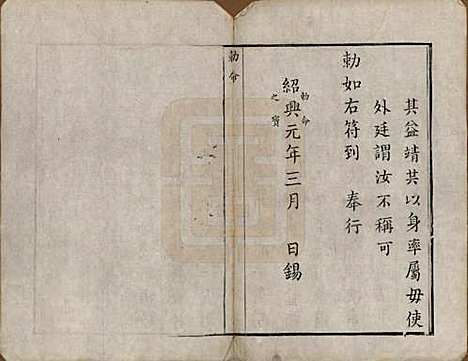 其益靖共以身率屬毋使
外廷謂汝不稱可
勅如右符到 奉行
紹興元年三月 日錫
勅命
之寶
勅命